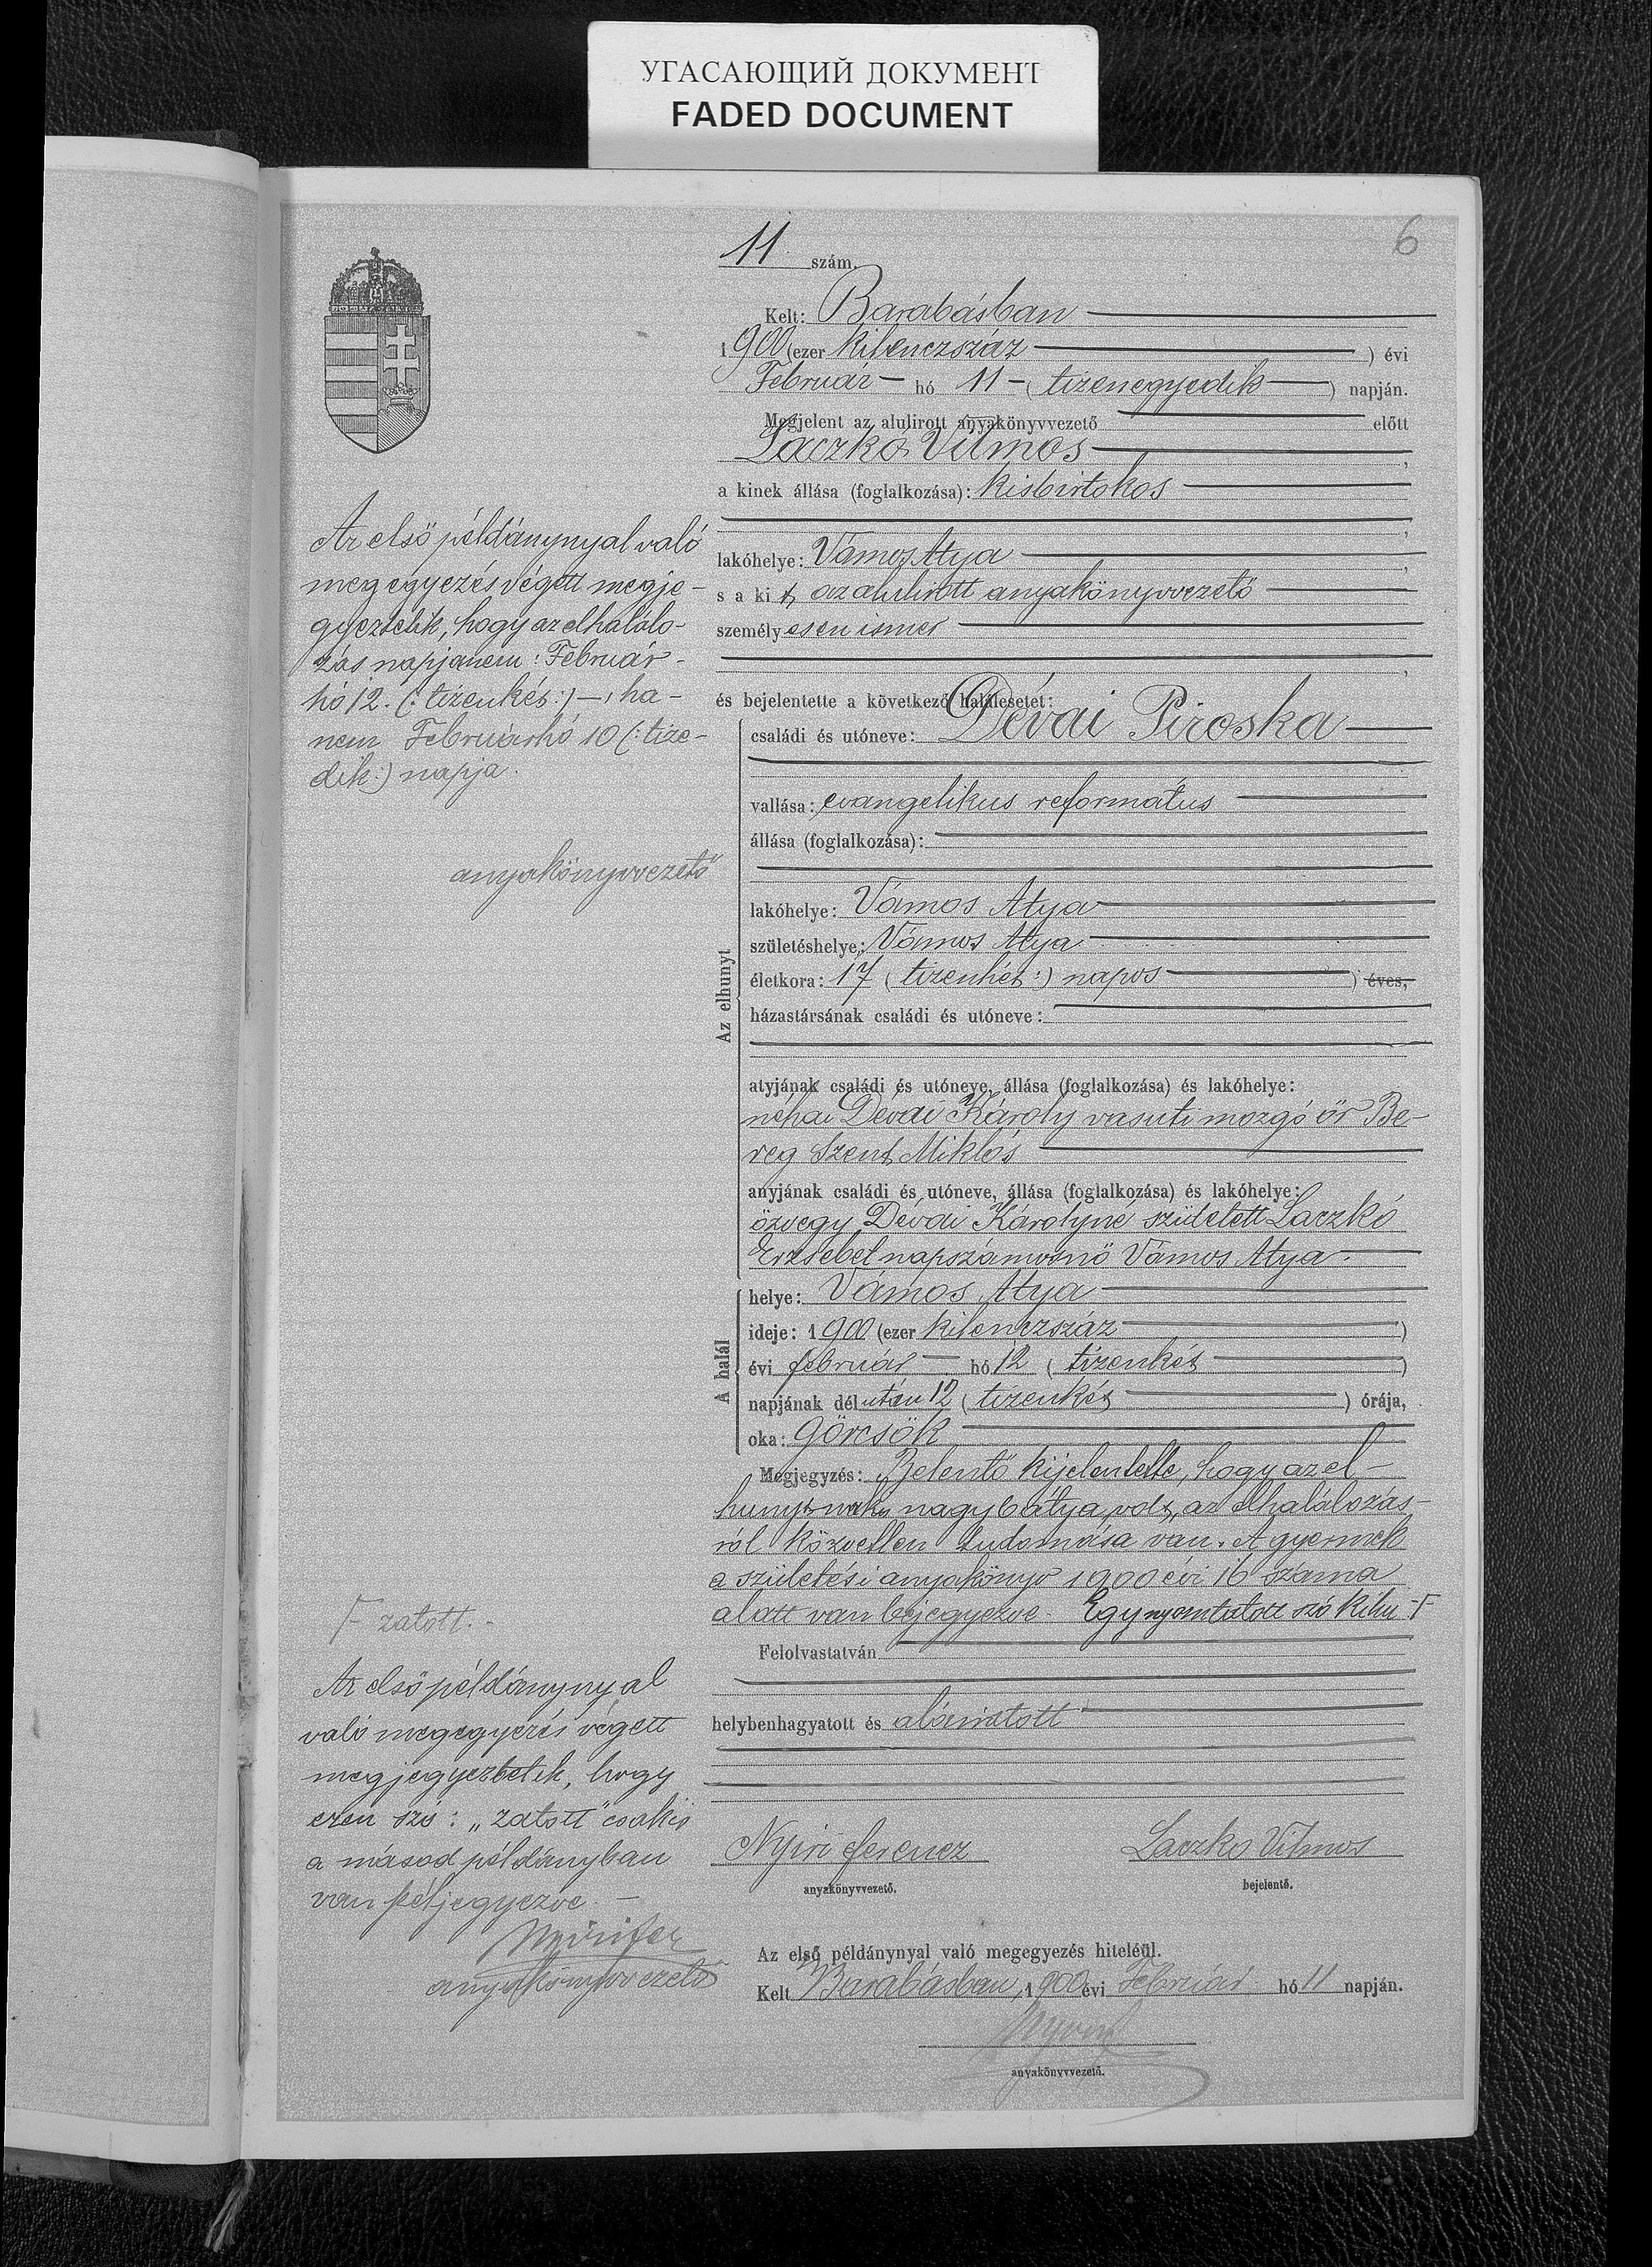 УГАСАЮЩИЙ ДОКУМЕНТ
FADED DOCUMENT
6
11 szám.
Kelt: Barabásban
1900 (ezer kilenczszáz ) évi
Február hó 11 ( tizenegyedik ) napján.
Megjelent az alulirott anyakönyvvezető előtt
Laczkó Vilmos ,
a kinek állása (foglalkozása): kisbirtokos
,
lakóhelye: Vámos Atya ,
s a kit az alulirott anyakönyvvezető
személyesen ismer
,
és bejelentette a következő halálesetet:
Az elhunyt
családi és utóneve: Dévai Piroska
vallása: evangelikus református
állása (foglalkozása):
lakóhelye: Vámos Atya
születéshelye: Vámos Atya
életkora: 17 ( tizenhét :) napos ) éves,
házastársának családi és utóneve:
atyjának családi és utóneve, állása (foglalkozása) és lakóhelye:
néhai Dévai Károly vasuti mozgó őr Be-
reg Szent Miklós
anyjának családi és utóneve, állása (foglalkozása) és lakóhelye:
özvegy Dévai Károlyné született Laczkó
Erzsébet napszámosnő Vámos Atya
A halál
helye: Vámos Atya
ideje: 1900 (ezer kilenczszáz )
évi február hó 12 ( tizenkét )
napjának délután 12 ( tizenkét ) órája,
oka: Görcsök
Megjegyzés: Bejelentő kijelentette, hogy az el-
hunytnak nagybátya volt, az elhalálozás-
ról közvetlen tudomása van. A gyermek
a születési anyakönyv 1900 évi 16 száma
alatt van bejegyezve. Egy nyomtatott szó kihu F
Felolvastatván
helybenhagyatott és aláiratott
Nyiri Ferencz
anyakönyvvezető.
Laczko Vilmos
bejelentő.
Az első példánynyal való megegyezés hiteléül.
Kelt Barabásban, 1900 évi Február hó 11 napján.
anyakönyvvezető.
Az első példánynyal való
megegyezés végett megje-
gyeztetik, hogy az elhalálo-
zás napja nem: Február
hó 12. (: tizenkét :) —, ha-
nem Február hó 10 (: tize-
dik :) napja.
anyakönyvvezető
F zatott. -
Az első példánynyal
való megegyezés végett
megjegyeztetik, hogy
ezen szó: „zatott" csakis
a másod példányban
van feljegyezve. —
Nyiri Fer
anyakönyvvezető